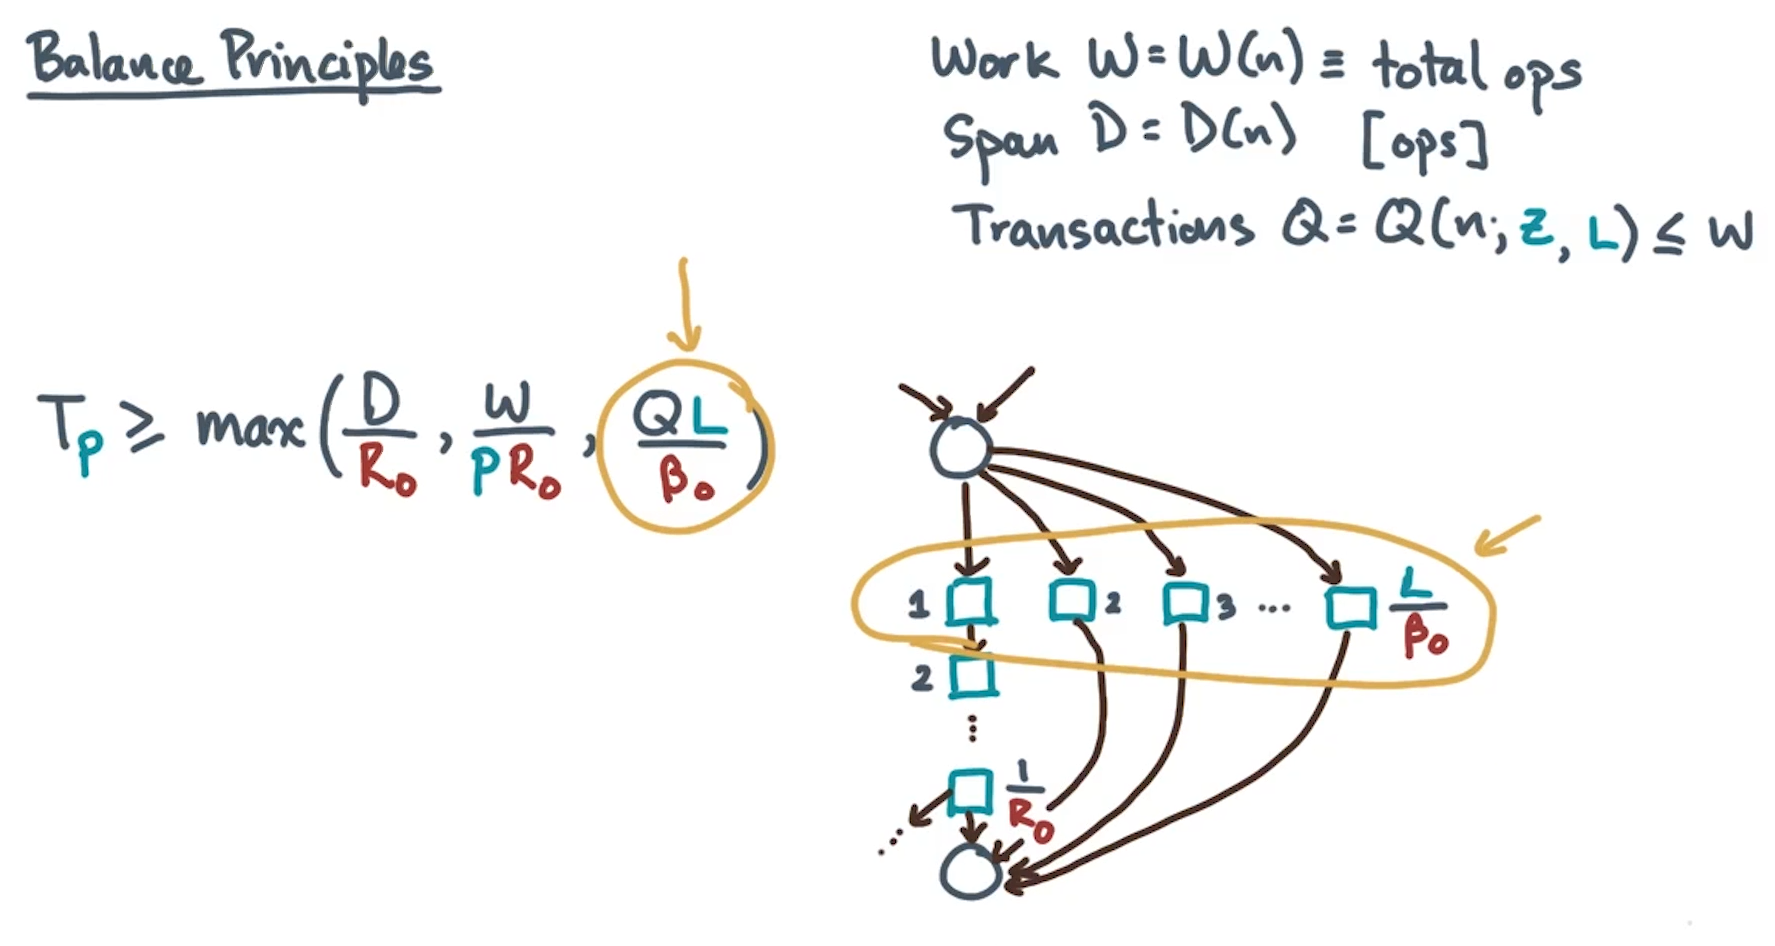 Balance Principles
Work W = W(n) ≡ total ops
Span D = D(n) [ops]
Transactions Q = Q(n; Z, L) ≤ W
T_P ≥ max(D/R₀, W/PR₀, QL/β₀)
1 2 3 ... L/β₀
2
⋮
1/R₀